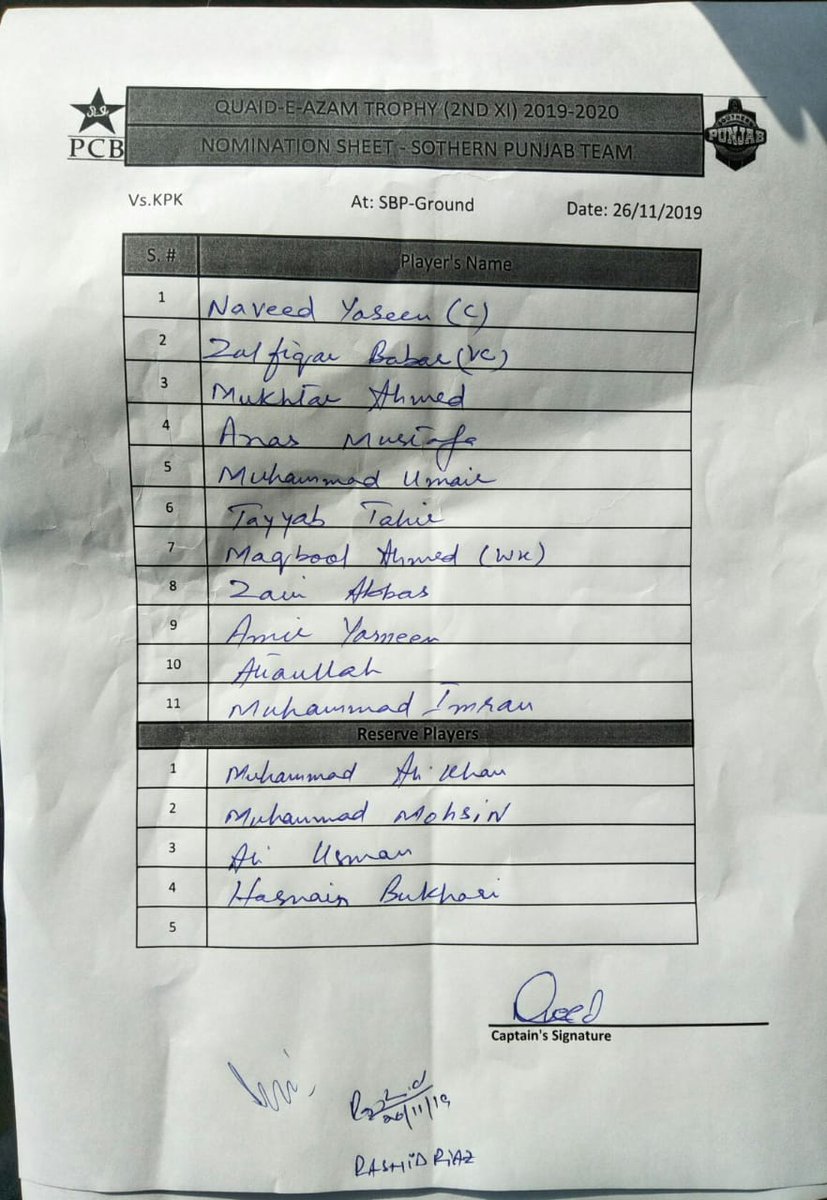 PCB
QUAID-E-AZAM TROPHY (2ND XI) 2019-2020
NOMINATION SHEET - SOTHERN PUNJAB TEAM
SOTHERN
PUNJAB
Vs.KPK At: SBP-Ground Date: 26/11/2019
S. # Player's Name
1 Naveed Yaseen (C)
2 Zalfiqar Babar (VC)
3 Mukhtar Ahmed
4 Anas Mustafa
5 Muhammad Umair
6 Tayyab Tahir
7 Maqbool Ahmed (WK)
8 Zain Abbas
9 Amir Yameen
10 Ataullah
11 Muhammad Imran
Reserve Players
1 Muhammad Ali Khan
2 Muhammad Mohsin
3 Ali Usman
4 Hasnain Bukhari
5
Captain's Signature
26/11/19
RASHID RiAZ